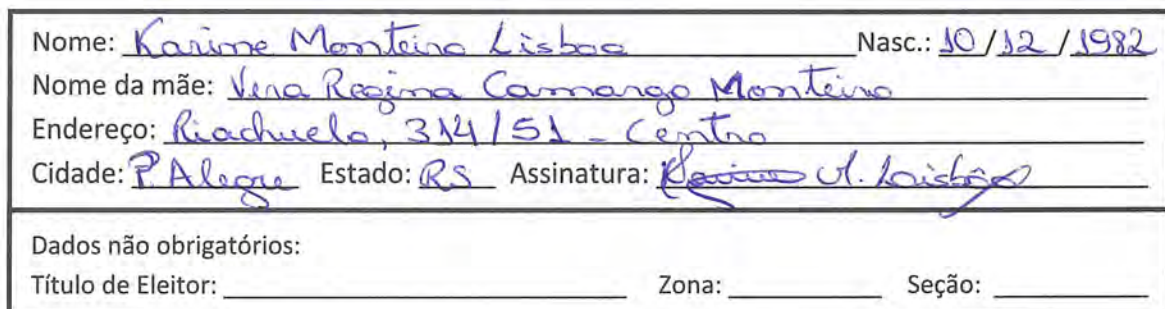 Nome: Karine Monteiro Lisboa Nasc.: 10/12/1982
Nome da mãe: Vera Regina Camargo Monteiro
Endereço: Riachuelo, 314/51 - Centro
Cidade: P. Alegre Estado: RS Assinatura: Karine M. Lisboa
Dados não obrigatórios:
Título de Eleitor: Zona: Seção: